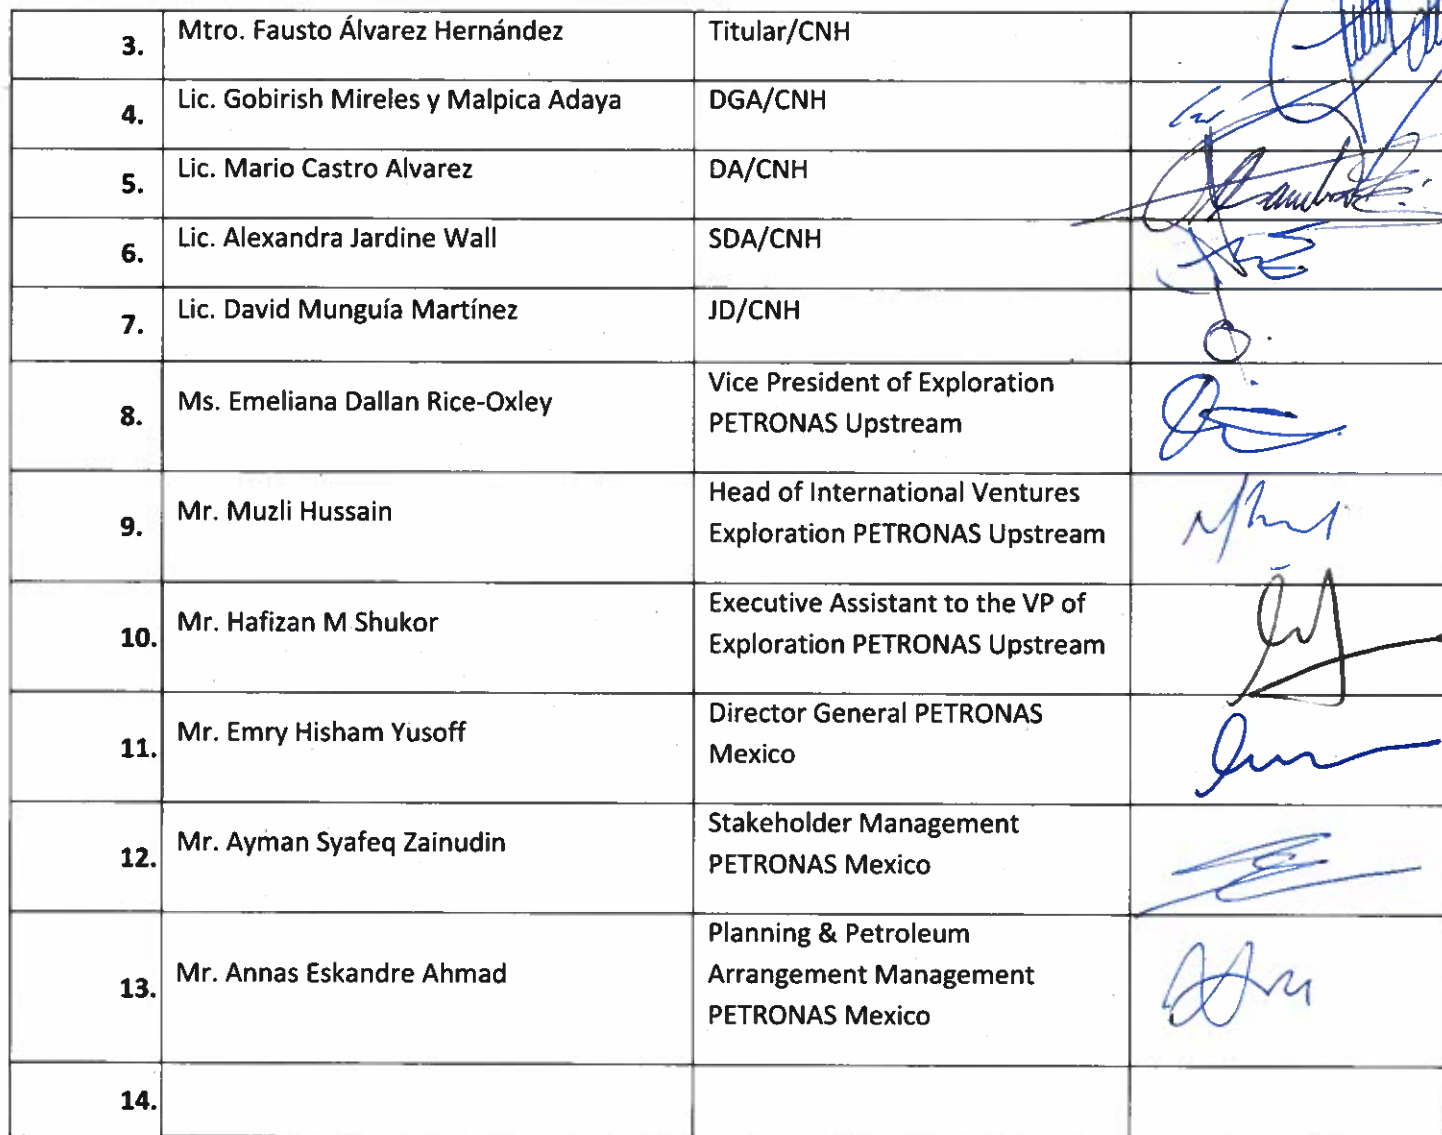 3. Mtro. Fausto Álvarez Hernández Titular/CNH
4. Lic. Gobirish Mireles y Malpica Adaya DGA/CNH
5. Lic. Mario Castro Alvarez DA/CNH
6. Lic. Alexandra Jardine Wall SDA/CNH
7. Lic. David Munguía Martínez JD/CNH
8. Ms. Emeliana Dallan Rice-Oxley Vice President of Exploration
PETRONAS Upstream
9. Mr. Muzli Hussain Head of International Ventures
Exploration PETRONAS Upstream
10. Mr. Hafizan M Shukor Executive Assistant to the VP of
Exploration PETRONAS Upstream
11. Mr. Emry Hisham Yusoff Director General PETRONAS
Mexico
12. Mr. Ayman Syafeq Zainudin Stakeholder Management
PETRONAS Mexico
13. Mr. Annas Eskandre Ahmad Planning & Petroleum
Arrangement Management
PETRONAS Mexico
14.